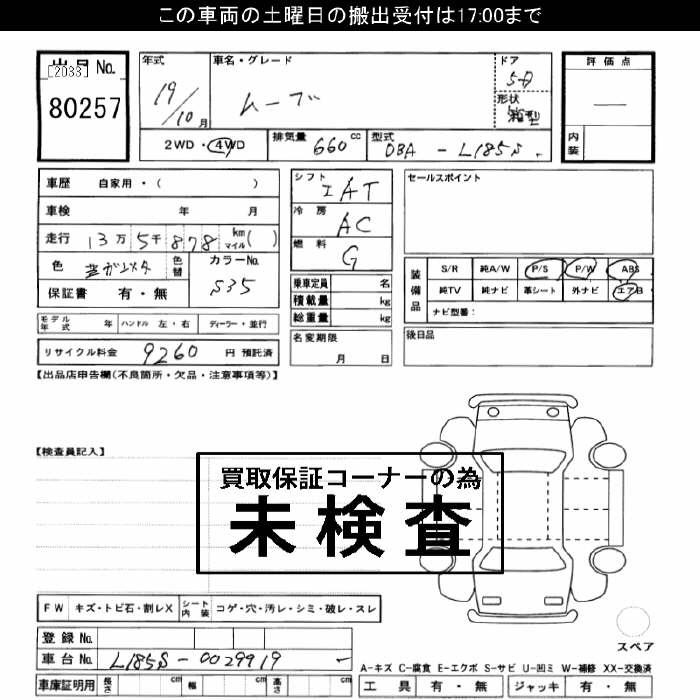 この車両の土曜日の搬出受付は17:00まで
出品No.
[2033]
80257
年式
19/10月
車名・グレード
ムーブ
ドア
5D
形状
箱型
評価点
—
内装
2WD・4WD
排気量 660cc
型式 DBA-L185S
車歴 自家用・( )
車検 年 月
走行 13万5千878 km マイル( )
色
色替
カラーNo.
S35
保証書 有・無
シフト IAT
冷房 AC
燃料 G
乗車定員 名
積載量 kg
総重量 kg
名変期限
月 日
セールスポイント
装備品
S/R 純A/W P/S P/W ABS
純TV 純ナビ 革シート 外ナビ エアB
ナビ型番:
後日品
モデル年式 年 ハンドル 左・右 ディーラー・並行
リサイクル料金 9260 円 預託済
【出品店申告欄(不良箇所・欠品・注意事項等)】
【検査員記入】
買取保証コーナーの為
未検査
FW キズ・トビ石・割レX シート内装 コゲ・穴・汚レ・シミ・破レ・スレ
登録No.
車台No. L185S-0029919
スペア
A-キズ C-腐食 E-エクボ S-サビ U-凹ミ W-補修 XX-交換済
車庫証明用 長さ cm 幅 cm 高さ cm
工具 有・無 ジャッキ 有・無